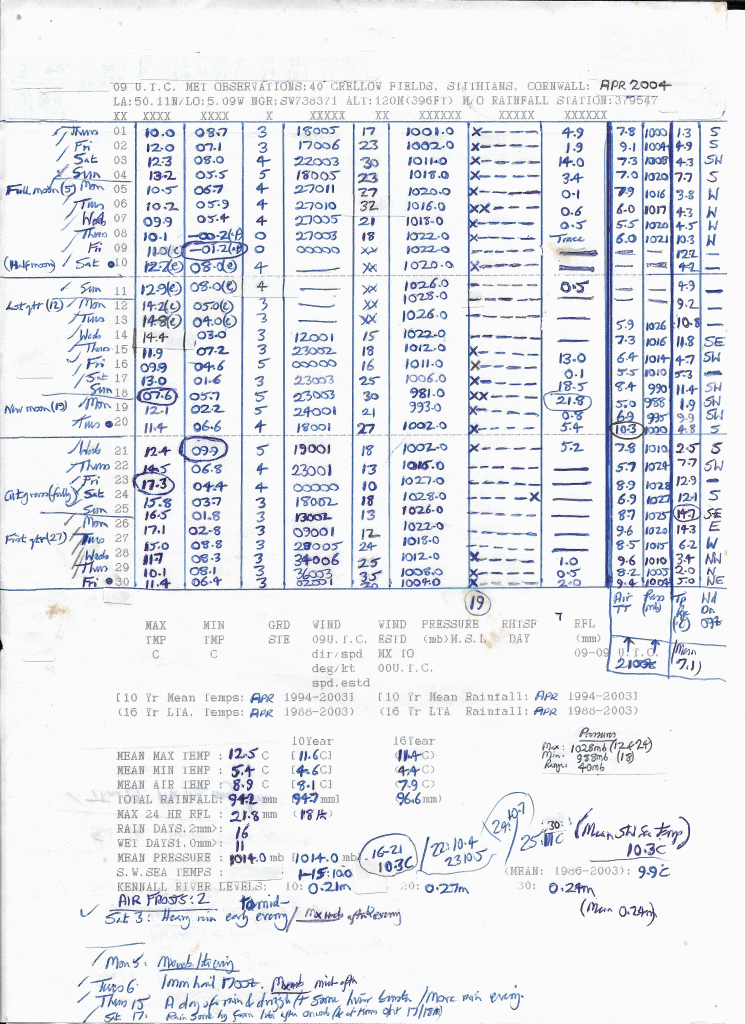 09 U.T.C. MET OBSERVATIONS:40 CRELLOW FIELDS, STITHIANS, CORNWALL: APR 2004
LA:50.11N/LO:5.09W NGR:SW738371 ALT:120M(396FT) M/O RAINFALL STATION:379547
XX XXXX XXXX X XXXXX XX XXXXXX XXXXX XXXXX
Thurs 01 10.0 08.7 3 18005 17 1001.0 X---- 4.9 7.8 1000 1.3 S
Fri 02 12.0 07.1 3 17006 23 1002.0 X---- 1.9 9.1 1004 4.9 S
Sat 03 12.3 08.0 4 22003 30 1011.0 X---- 14.0 7.3 1008 4.3 SW
Sun 04 13.2 05.5 5 18005 23 1018.0 X---- 3.4 7.0 1020 7.7 S
Full moon (5) Mon 05 10.5 06.7 3 27011 27 1020.0 X---- 0.1 7.9 1016 3.8 W
Tues 06 10.2 05.9 4 27010 32 1016.0 XX--- 0.6 6.0 1017 4.3 W
Wed 07 09.9 05.4 4 27005 21 1018.0 X---- 0.5 5.5 1020 4.5 W
Thurs 08 10.1 -00.2 0 27003 18 1022.0 X---- Trace 6.0 1021 10.3 W
Fri 09 11.0(e) -01.2 0 00000 XX 1022.0 12.2 -
(Half moon) Sat 10 12.2(e) 08.0(e) 4 XX 1020.0 4.2 -
Sun 11 12.9(e) 08.0(e) 4 XX 1026.0 0.5 4.9 -
Last qtr (12) Mon 12 14.2(e) 05.0(e) 3 XX 1028.0 9.2 -
Tues 13 14.8(e) 04.0(e) 3 XX 1026.0 5.9 1026 10.8 -
Wed 14 14.4 03.0 3 12001 15 1022.0 7.3 1016 11.8 SE
Thurs 15 11.9 07.2 3 23002 18 1012.0 X---- 13.0 6.4 1014 4.7 SW
Fri 16 09.9 04.6 5 00000 16 1011.0 X---- 0.1 5.5 1010 5.3 -
Sat 17 13.0 01.6 3 23003 25 1006.0 X---- 18.5 8.4 990 11.4 SW
Sun 18 07.6 05.7 5 23003 30 981.0 XX--- 21.8 5.0 988 1.9 SW
New moon (19) Mon 19 12.1 02.2 5 24001 21 993.0 0.8 6.9 995 9.9 SW
Tues 20 11.4 06.6 4 18001 27 1002.0 X---- 5.4 10.3 1000 4.8 S
Wed 21 12.4 09.9 5 19001 18 1002.0 X---- 5.2 7.8 1010 2.5 S
Thurs 22 14.5 06.8 4 23001 13 1016.0 5.7 1024 7.7 SW
Fri 23 17.3 04.4 4 00000 10 1027.0 8.9 1028 12.9 -
Sat 24 15.8 03.7 3 18002 18 1028.0 ----X 6.9 1027 12.1 S
Sun 25 16.5 01.8 3 13002 13 1026.0 8.7 1025 14.7 SE
Mon 26 17.1 02.8 3 09001 12 1022.0 9.6 1020 14.3 E
First qtr (27) Tues 27 15.0 08.8 3 28005 24 1018.0 8.5 1015 6.2 W
Wed 28 11.7 08.3 3 34006 25 1012.0 X---- 1.0 9.6 1010 3.4 NW
Thurs 29 10.1 08.1 3 36003 35 1008.0 X---- 0.5 8.2 1005 2.0 N
Fri 30 11.4 06.4 3 02001 1004.0 X---- 2.0 9.4 1004 5.0 NE
19
Air TT Press (mb)
MAX MIN GRD WIND WIND PRESSURE RHTSF RFL
TMP TMP STE 09U.T.C. ESTD (mb)M.S.L DAY (mm)
C C dir/spd MX TO 09-09 U.T.C.
deg/kt 00U.T.C.
spd.estd
2100z (Mean 7.1)
[10 Yr Mean Temps: APR 1994-2003] [10 Yr Mean Rainfall: APR 1994-2003]
(16 Yr LTA. Temps: APR 1988-2003) (16 Yr LTA Rainfall: APR 1988-2003)
Pressure
Max: 1028mb (12&24)
Min: 988mb (18)
Range: 40mb
10Year 16Year
MEAN MAX TEMP : 12.5 C [11.6C] (11.4 C)
MEAN MIN TEMP : 5.4 C [4.6C] (4.4 C)
MEAN AIR TEMP : 8.9 C [8.1C] (7.9 C)
TOTAL RAINFALL: 94.2 mm [94.7 mm] (96.6mm)
MAX 24 HR RFL : 21.8 mm (18th)
RAIN DAYS.2mm): 16
WET DAYS1.0mm): 11
MEAN PRESSURE : 1014.0 mb [1014.0 mb]
16-21 10.3C
22:10.4
23 10.5
24: 10.7
25: 30: C
(Mean Std Sea Temp) 10.3C
S.W.SEA TEMPS : 1-15:10.0 (MEAN: 1986-2003): 9.9C
KENNALL RIVER LEVELS: 10: 0.21m 20: 0.27m 30: 0.24m
(Mean 0.24m)
AIR FROSTS: 2
Sat 3: Heavy rain early evening
Mon 5:
Tues 6: 1mm hail
Thurs 15 A day of rain & drizzle
Sat 17: